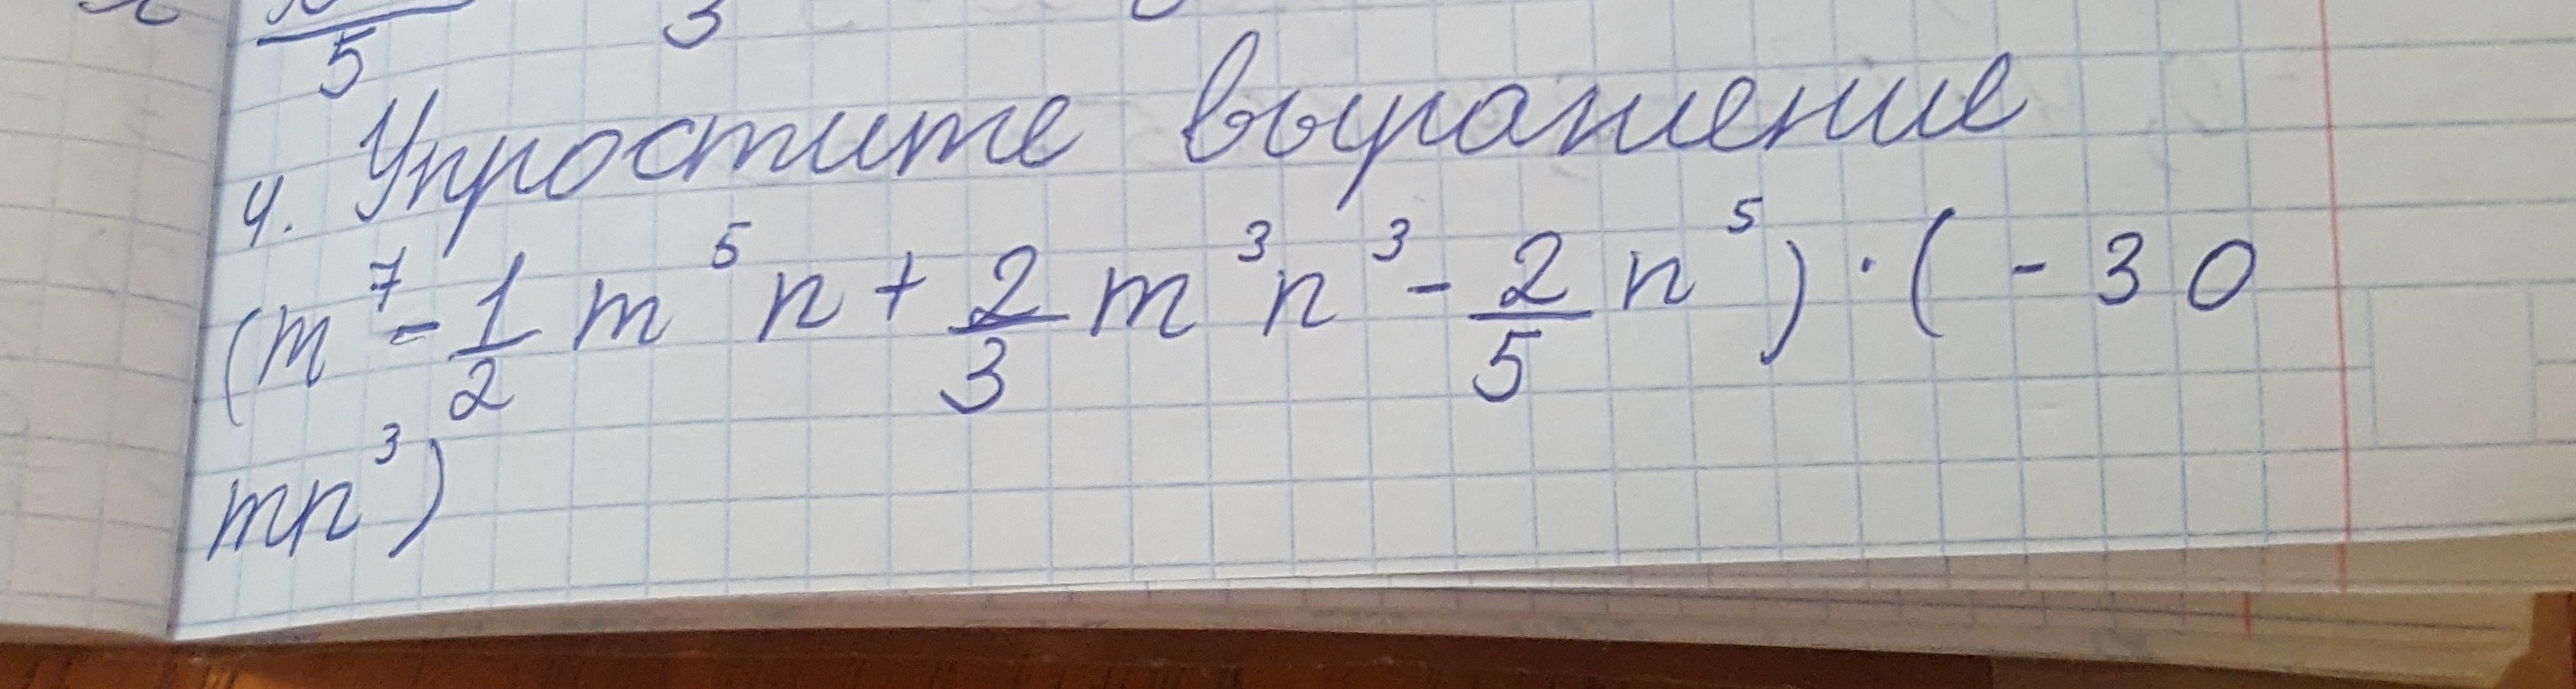 5 3
4. Упростите выражение
(m⁷ - 1/2 m⁵n + 2/3 m³n³ - 2/5 n⁵) · (-30
mn³)